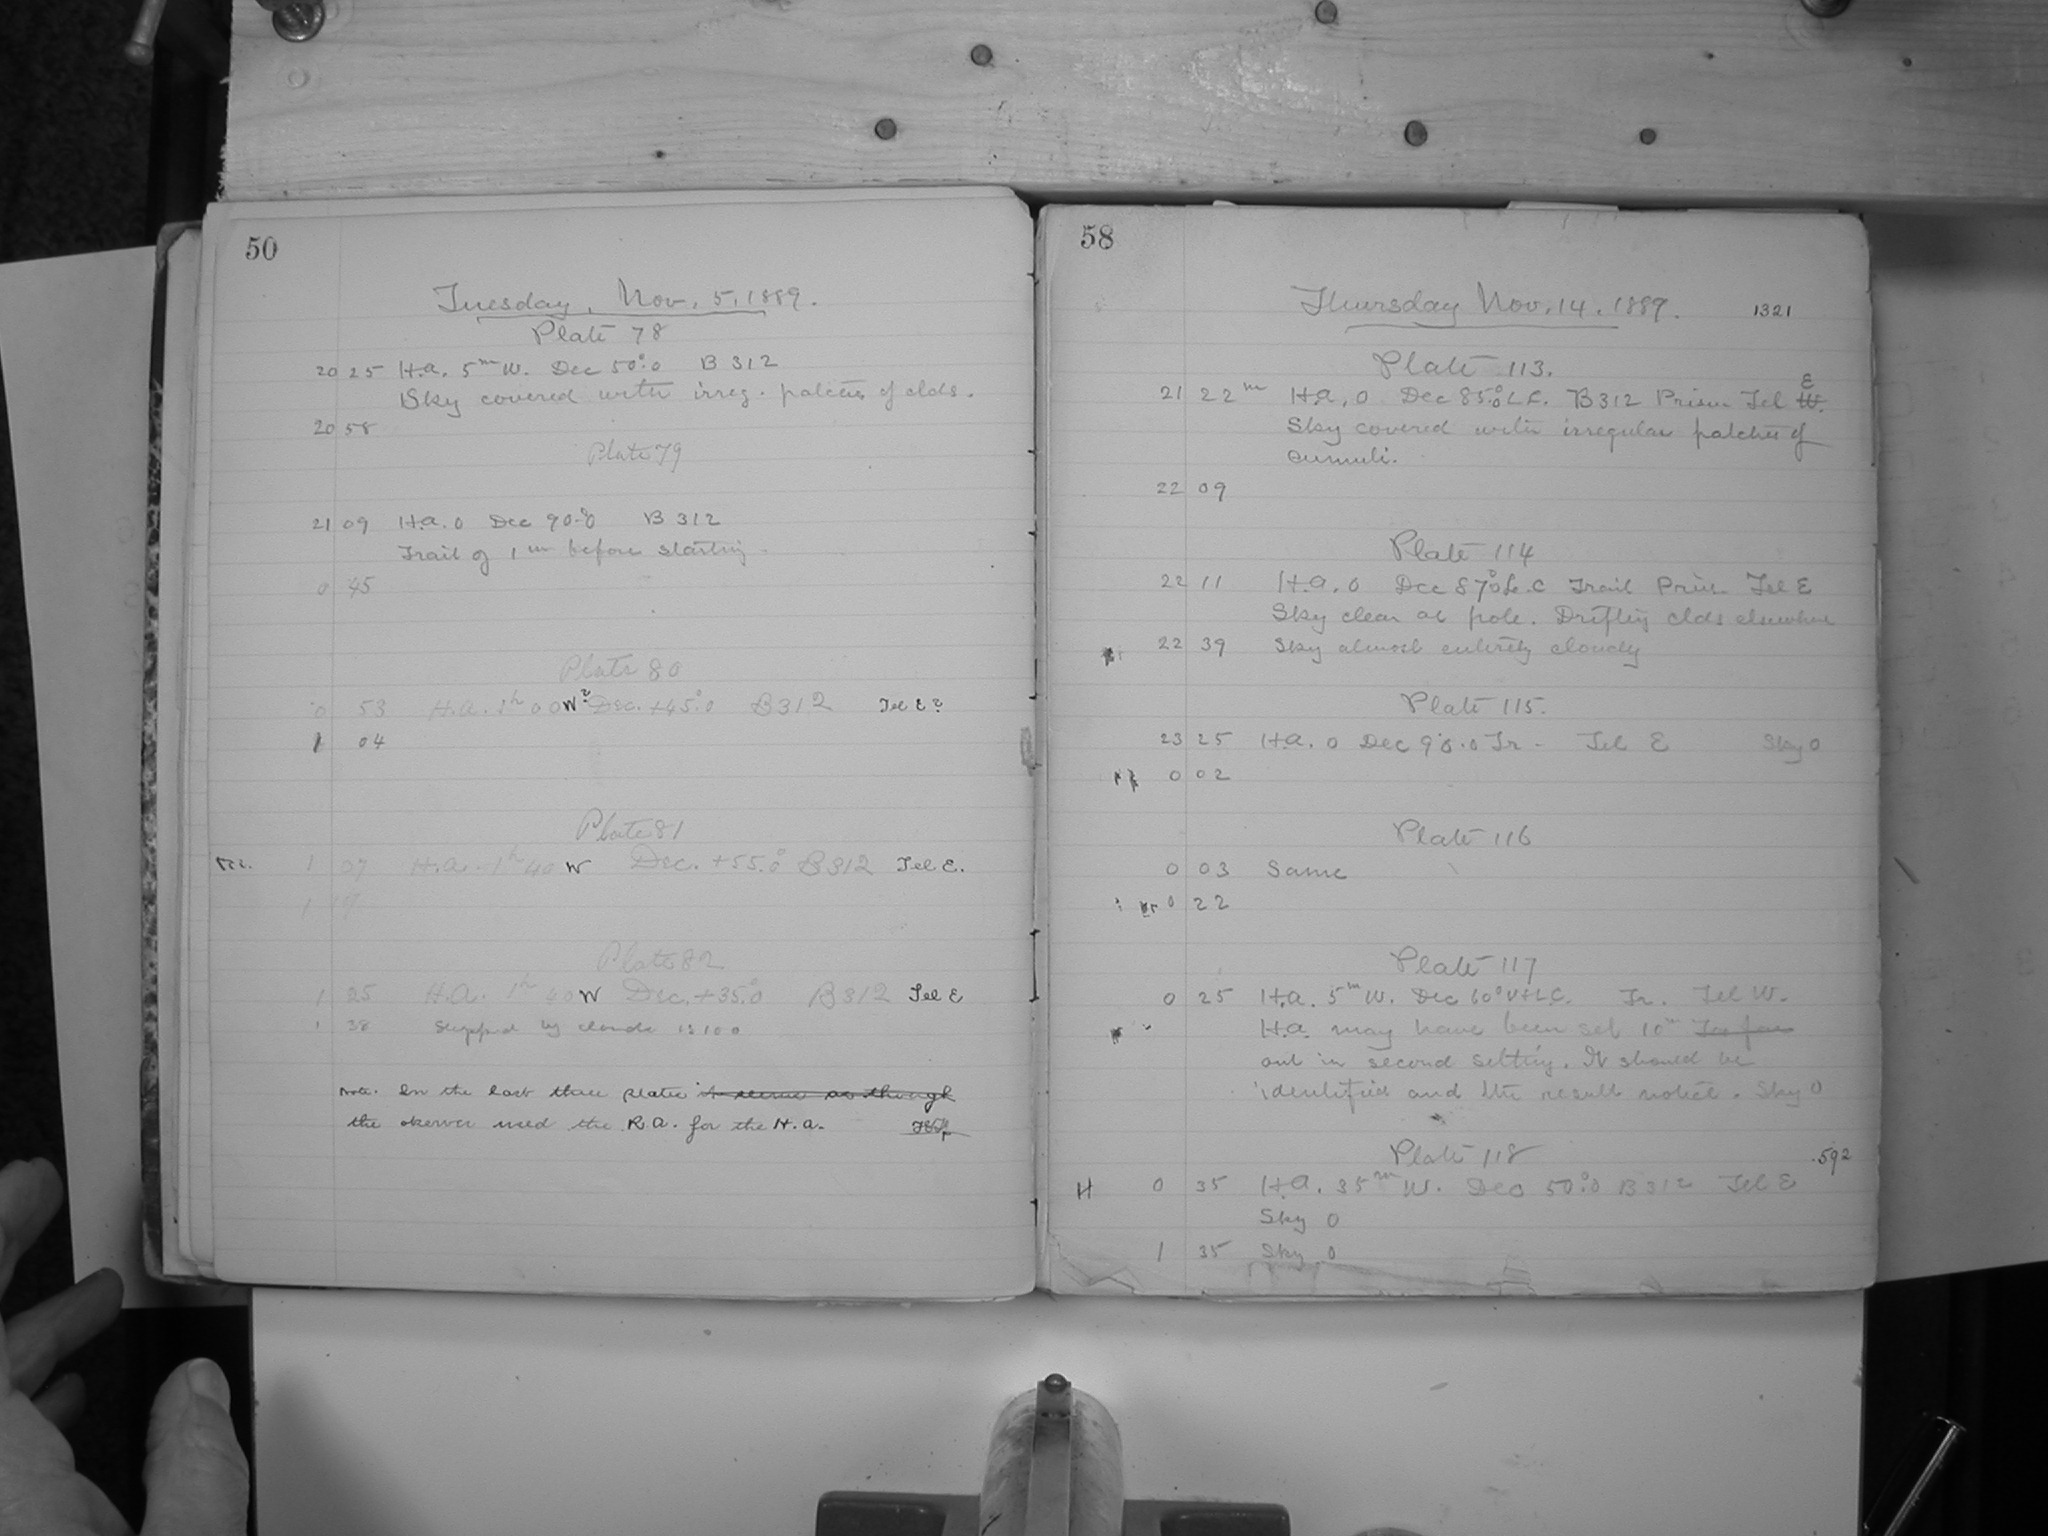 50
Tuesday, Nov. 5, 1889.
Plate 78
20 25 H.a. 5m W. Dec 50°.0 B 312
Sky covered with irreg. patches of clds.
20 58
Plate 79
21 09 H.a. 0 Dec 90°.0 B 312
Trail of 1m before starting.
0 45
Plate 80
0 53 H.a. 1h 00 W? Dec. +45°.0 B 312 Tel E?
1 04
Plate 81
Rec. 1 07 H.a. 1h 40 W Dec. +55°.0 B 312 Tel E.
1
Plate 82
1 25 H.A. 1h 40 W Dec. +35°.0 B 312 Tel E
1 38 Stopped by clouds
Note. In the last three plates it seems as though
the oberver used the R.a. for the H.a.
58
Thursday Nov. 14. 1889. 1321
Plate 113.
E
21 22m H.a. 0 Dec 85°.0 L.C. B 312 Prism Tel W.
Sky covered with irregular patches of
cumuli.
22 09
Plate 114
22 11 H.a. 0 Dec 87°.0 L.C Trail Prism Tel E
Sky clear at pole. Drifting clds elsewhere
22 39 Sky almost entirely cloudy
Plate 115.
23 25 H.a. 0 Dec 90.0 Tr. Tel E Sky 0
0 02
Plate 116
0 03 Same
0 22
Plate 117
0 25 H.a. 5m W. Dec 60° U+L.C. Tr. Tel W.
H.a. may have been set 10m Too far
out in second setting. It should be
identified and the result noted. Sky 0
Plate 118 592
H 0 35 H.a. 35m W. Dec 50°.0 B 312 Tel E
Sky 0
1 35 Sky 0